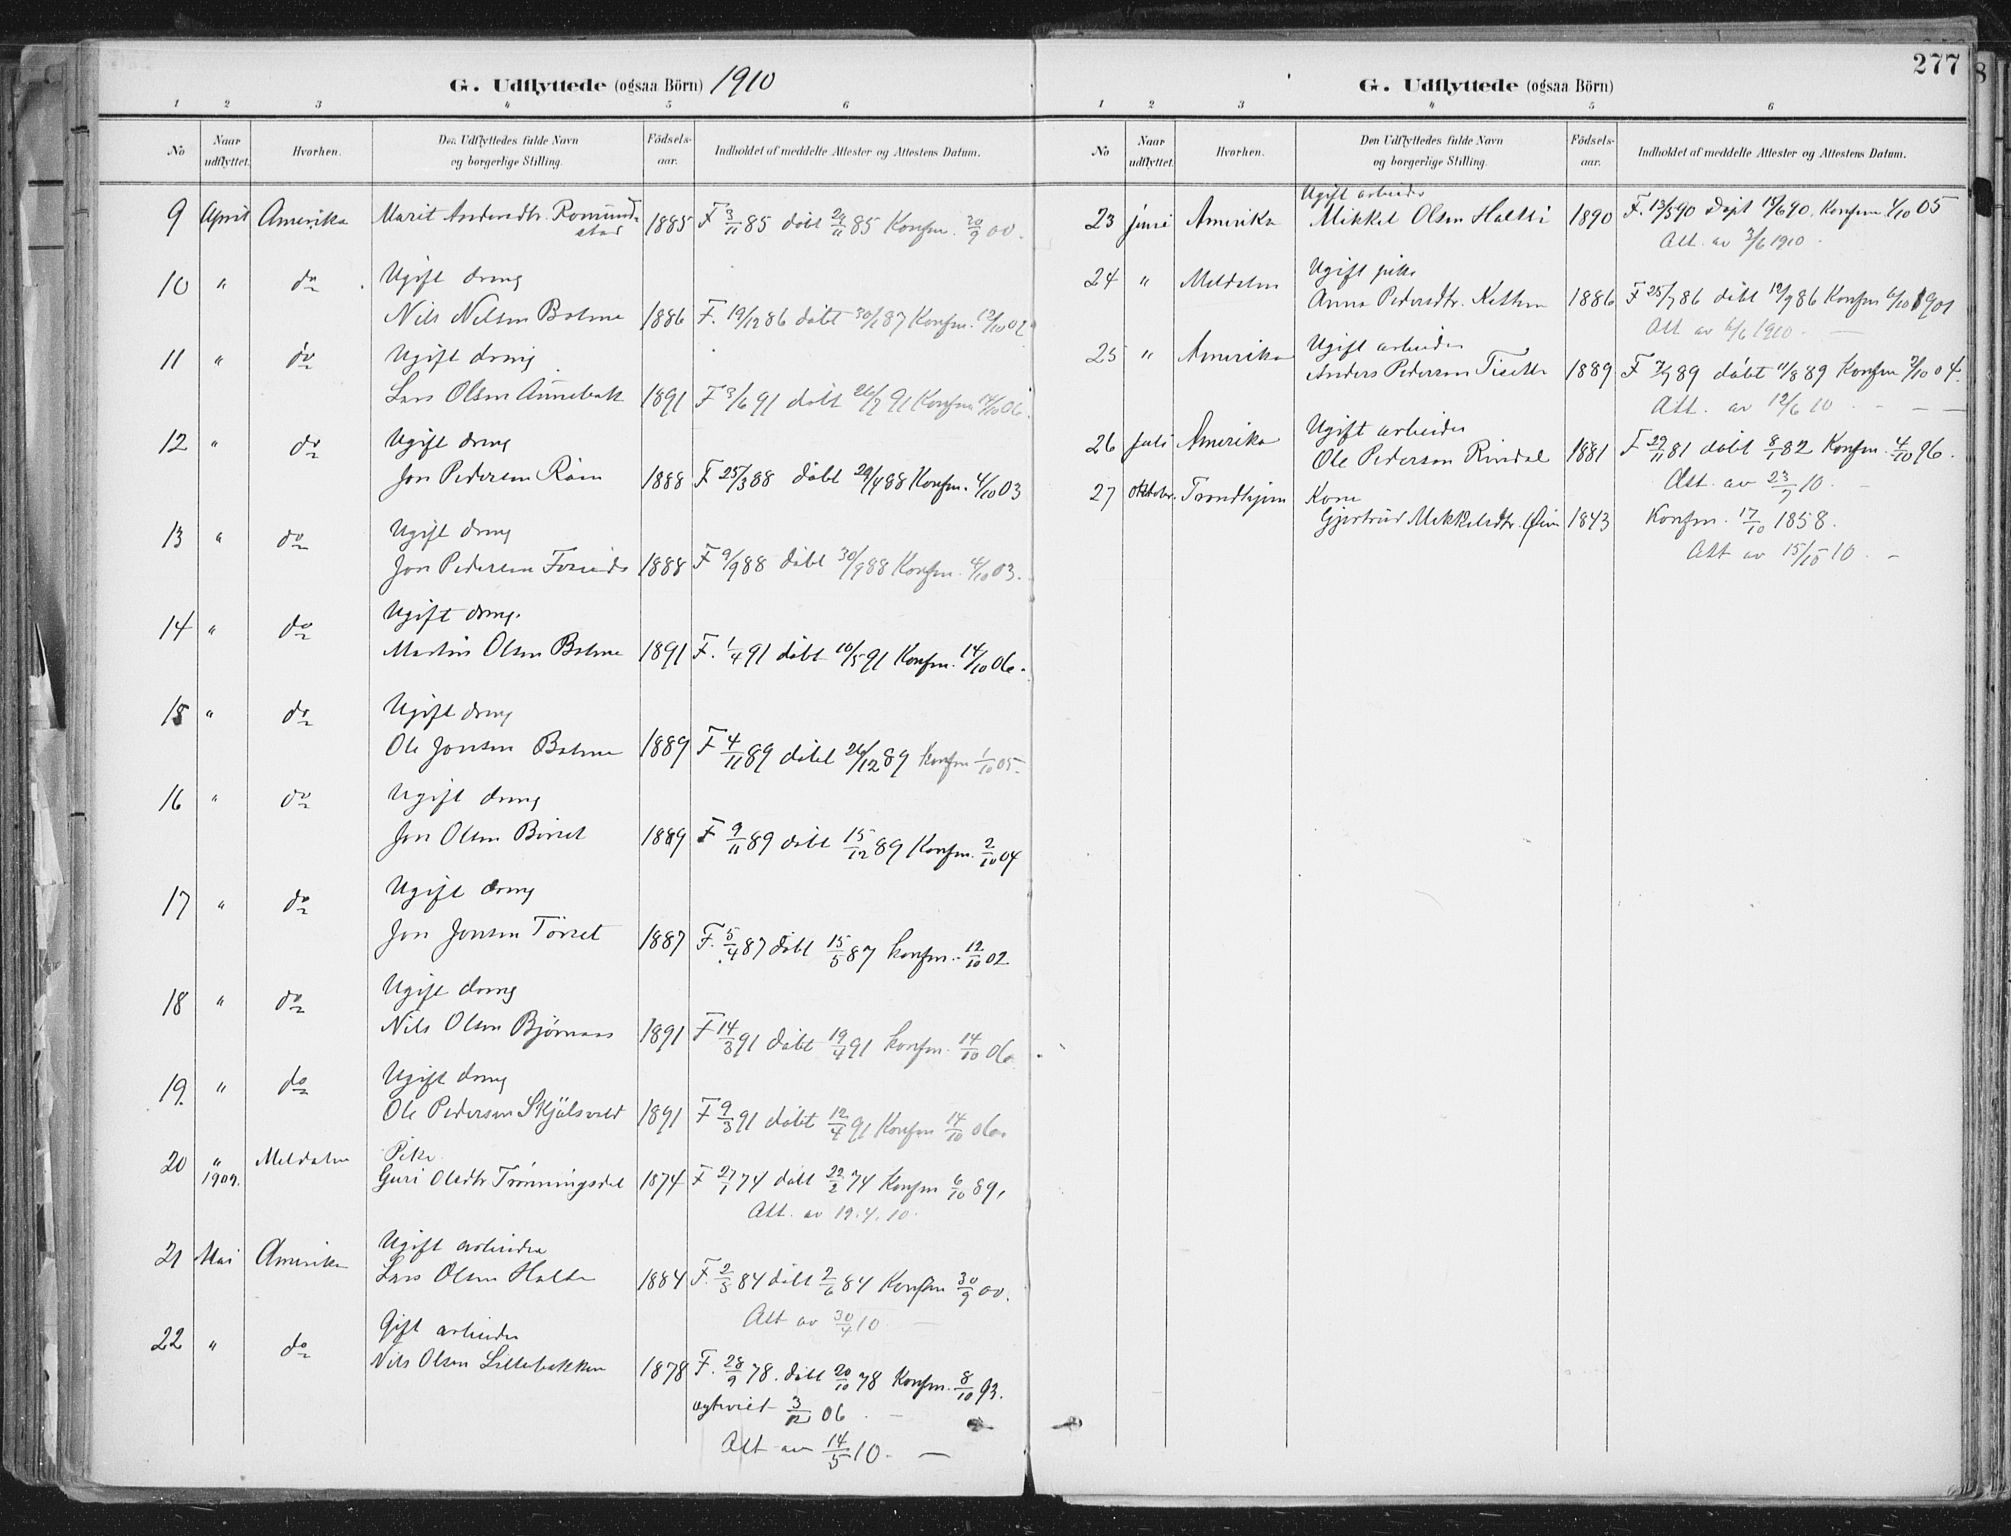 G. Udflyttede (ogsaa Börn) 1910
1 2 3 4 5 6
No Naar udflyttet. Hvorhen. Den Udflyttedes fulde Navn og borgerlige Stilling. Födsels-aar. Indholdet af meddelte Attester og Attestens Datum.
9 April Amerika Marit Andersdtr. Romund- 1885 F 3/11 85 döbt 29/11 85 Konfm. 30/9 00.
stad
10 " do Ugift dreng
Nils Nilsen Bolme 1886 F. 19/12 86 döbt 30/1 87 Konfm. 12/10 02
11 " do Ugift dreng
Lars Olsen Aunebak 1891 F 3/6 91 döbt 26/7 91 Konfm 14/10 06.
12 " do Ugift dreng
Jon Pedersen Röen 1888 F 25/3 88 döbt 29/4 88 Konfm. 4/10 03
13 " do Ugift dreng
Jon Pedersen 1888 F 9/9 88 döbt 30/9 88 Konfm. 4/10 03.
14 " do Ugift dreng.
Martin Olsen Bolme 1891 F. 1/4 91 döbt 10/5 91 Konfm. 14/10 06.
15 " do Ugift dreng
Ole Jonsen Bolme 1889 F 4/11 89 döbt 26/12 89 Konfm 1/10 05.
16 " do Ugift dreng
Jon Olsen Börset 1889 F 9/11 89 döbt 15/12 89 Konfm. 2/10 04
17 " do Ugift dreng
Jon Jonsen Törset 1887 F. 5/4 87 döbt 15/5 87 konfm. 12/10 02
18 " do Ugift dreng
Nils Olsen Bjørnaas 1891 F 14/3 91 döbt 19/4 91 konfm. 14/10 06.
19. " do Ugift dreng
Ole Pedersen Skjölsvold 1891 F 9/3 91 döbt 12/4 91 Konfm 14/10 06.
20 " 1909. Meldalen Pike.
Guri Olsdtr Trønningsdal 1874 F 27/1 74 döbt 22/2 74 Konfm 6/10 89,
Att. av 19.4.10.
21 Mai Amerika Ugift arbeider
Lars Olsen Halte 1884 F. 2/5 84 döbt 2/6 84 Konfm 30/9 00.
Att av 30/4 10 —
22 " do Gift arbeider
Nils Olsen Lillebakken 1878 F. 28/9 78. döbt 20/10 78 Konfm. 8/10 93.
egteviet 3/12 06. —
Att av 14/5 10. —
277
G. Udflyttede (ogsaa Börn)
1 2 3 4 5 6
No Naar udflyttet. Hvorhen. Den Udflyttedes fulde Navn og borgerlige Stilling. Födsels-aar. Indholdet af meddelte Attester og Attestens Datum.
Ugift arbeider
23 juni Amerika Mikkel Olsen Halte 1890 F. 13/5 90 Döpt 15/6 90, Konfm 1/10 05
Att. av 3/6 1910.
24 " Meldalen Ugift pike
Anna Pedersdtr. 1886 F 25/7 86 döbt 19/9 86 Konfm 6/10 1901
Att av 6/6 1910. —
25 " Amerika Ugift arbeider
Anders Pedersen 1889 F 7/7 89 döbt 11/8 89 Konfm 2/10 04.
Att. av 12/6 10. — —
26 Juli Amerika Ugift arbeider
Ole Pederson Rindal 1881 F 29/11 81 döbt 8/1 82 Konfm. 4/10 96.
Att. av 23/7 10. —
27 Oktobr. Trondhjem Kone
Gjertrud Mikkelsdtr. Øien 1843 Konfm. 17/10 1858.
Att av 15/10 10. —